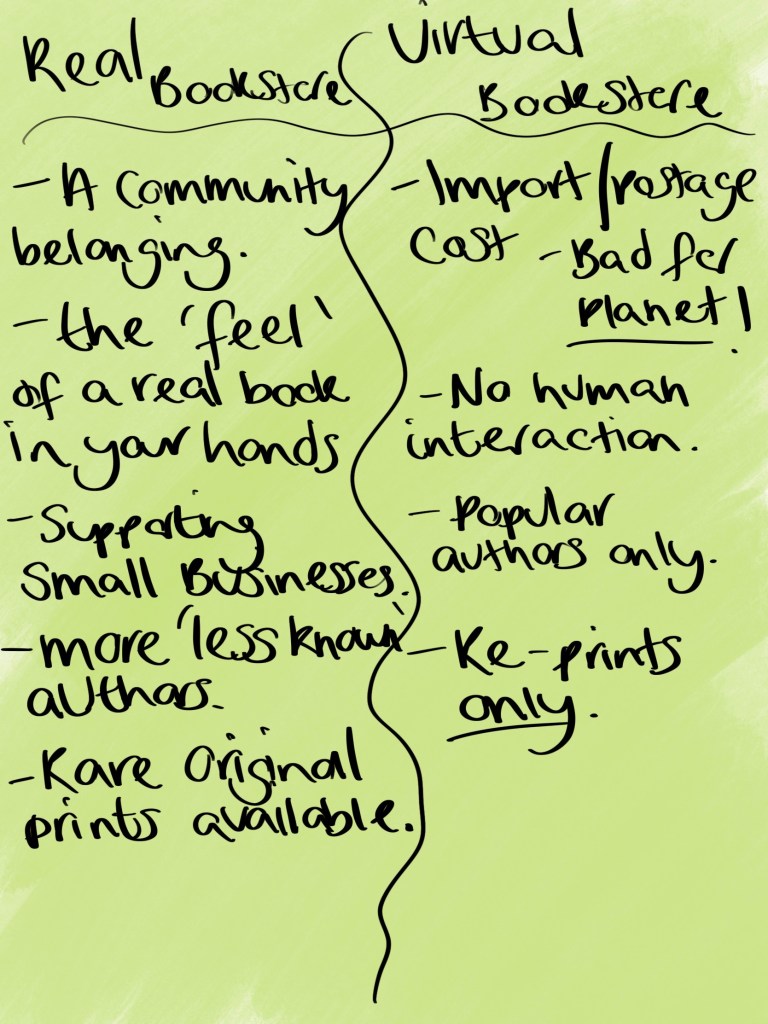 Real Bookstore
- A Community
belonging.
- the 'feel'
of a real book
in your hands
- Supporting
Small Businesses.
- more 'less known'
authors.
- Rare Original
prints available.
Virtual
Bookstore
- Import/postage
Cost - Bad for
planet!
- No human
interaction.
- Popular
authors only.
- Re-prints
only.